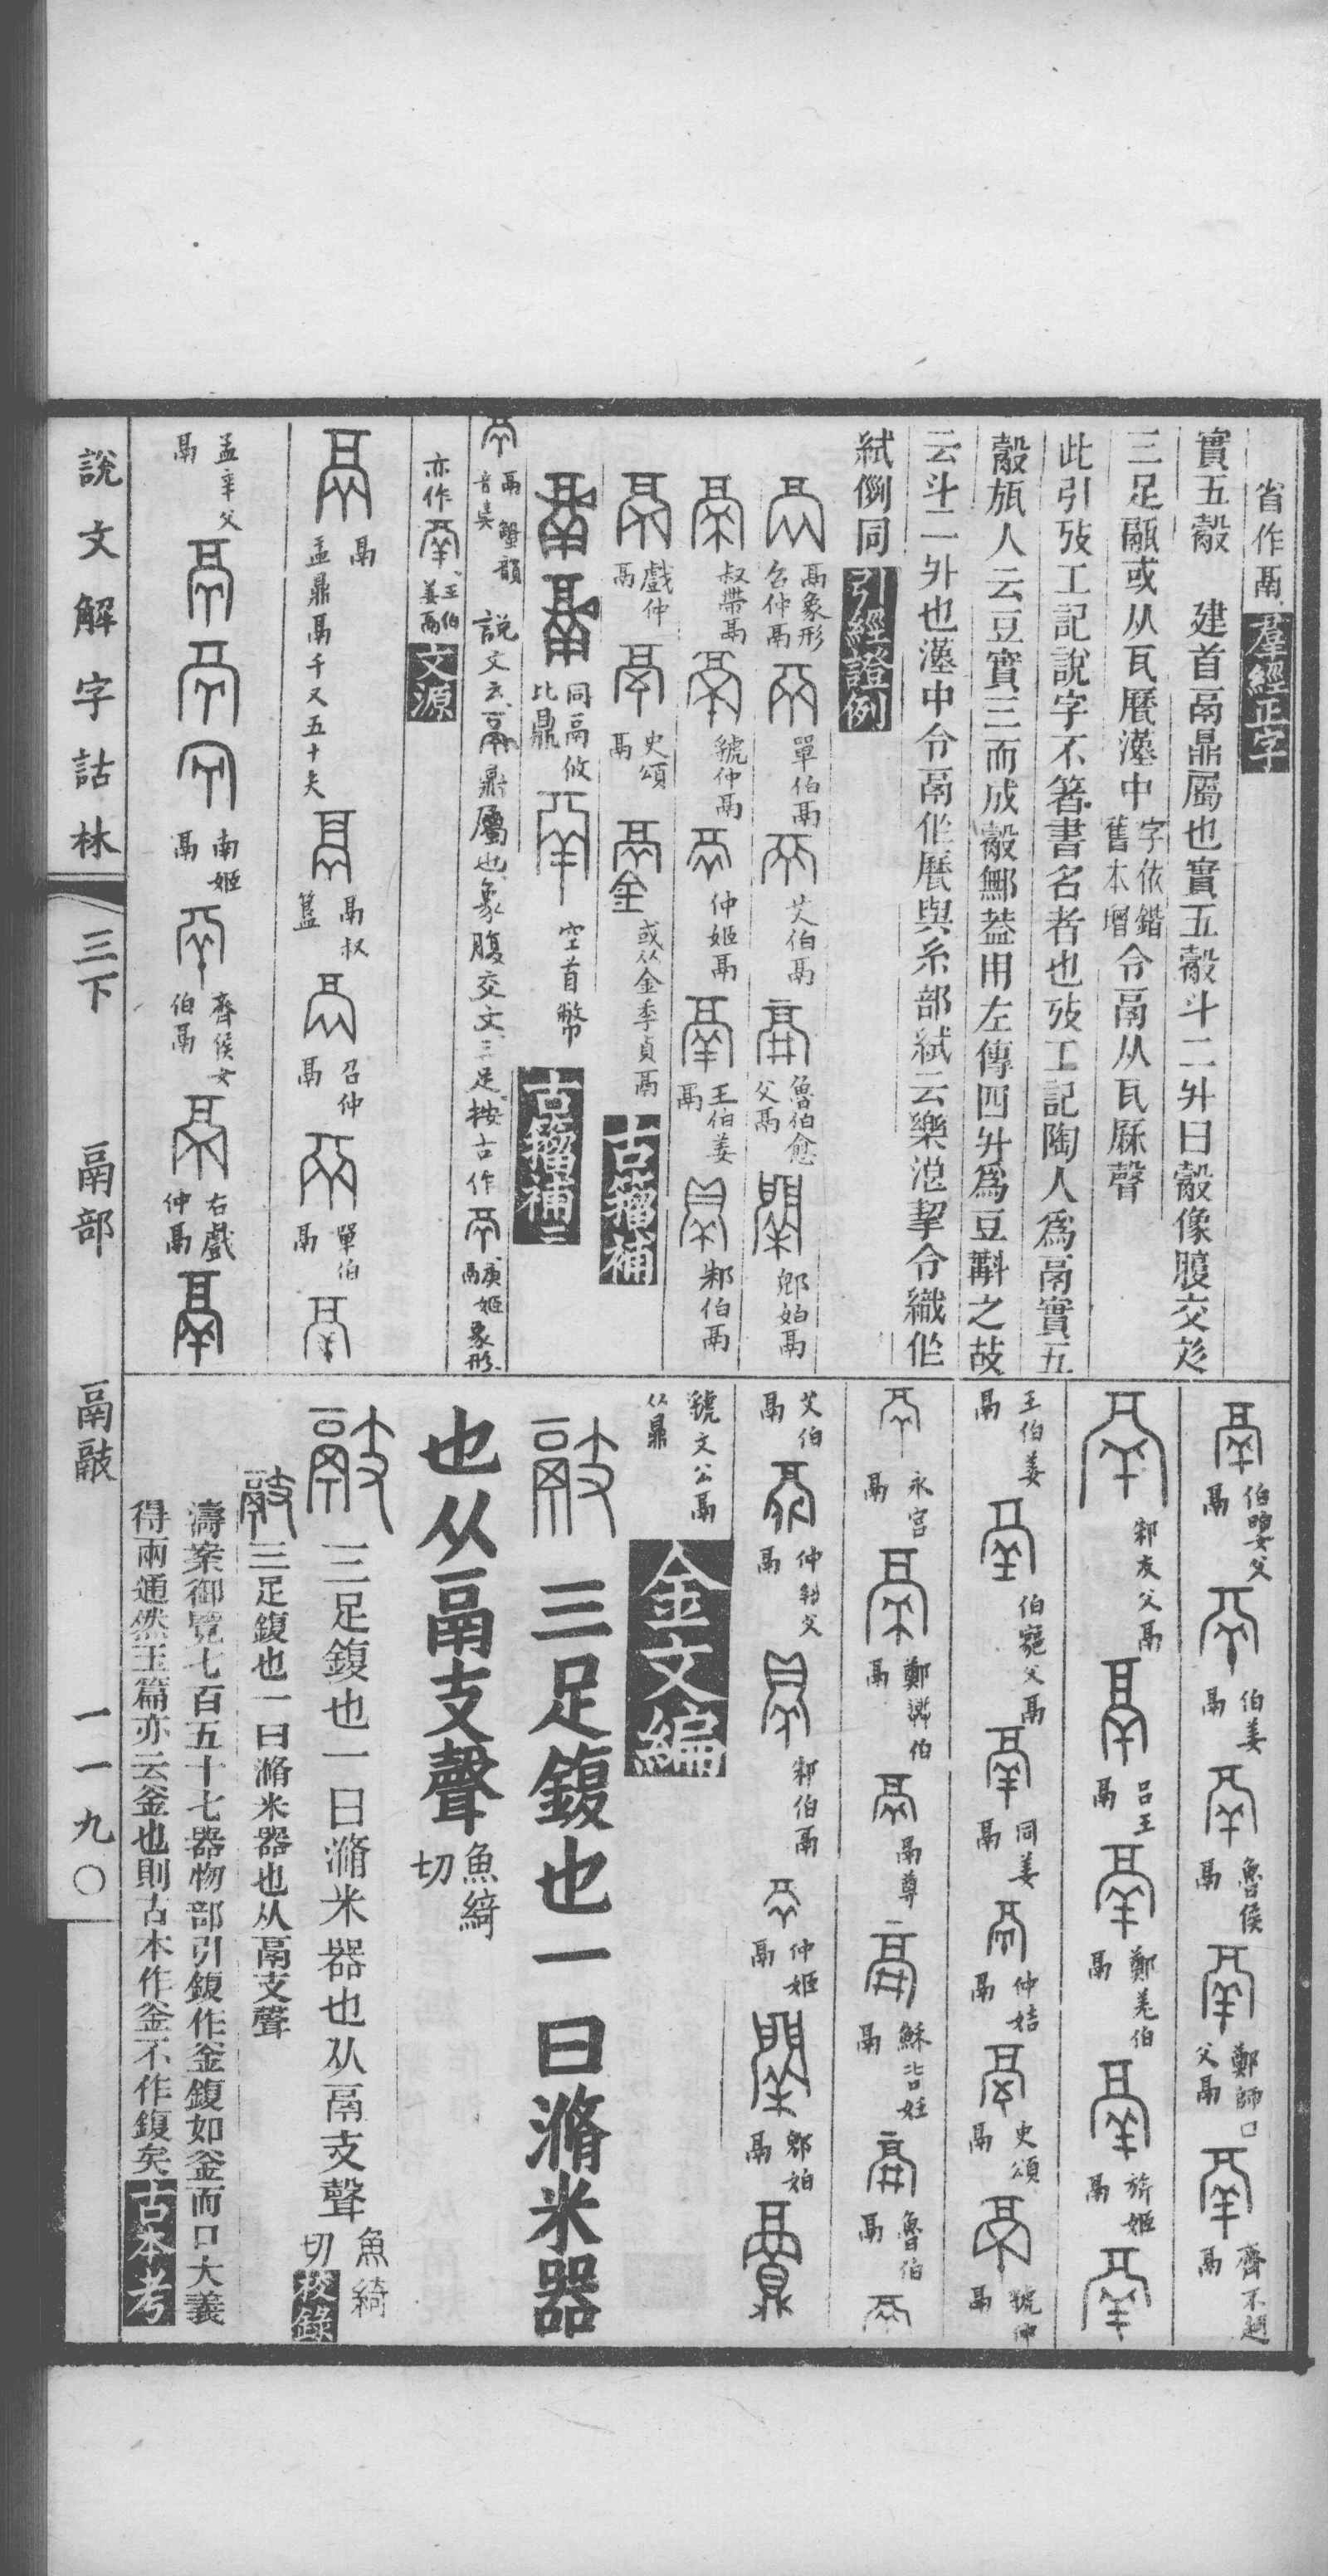 省作鬲羣經正字
實五觳　建首鬲鼎屬也實五觳斗二升曰觳像腹交文
三足䰛或从瓦㽁漢中字依鍇舊本增令鬲从瓦厤聲
此引攷工記說字不箸書名者也攷工記陶人爲鬲實五
觳瓬人云豆實三而成觳鄭葢用左傳四升爲豆㪺之故
云斗二升也漢中令鬲作㽁與糸部紌云樂浪挈令織作
紌例同引經證例
鬲象形召仲鬲
單伯鬲
艾伯鬲
魯伯愈父鬲
郳姶鬲
叔帶鬲
虢仲鬲
仲姬鬲
王伯姜鬲
邾伯鬲
戲仲鬲
史頌鬲
或从金季貞鬲
古籀補
同鬲攸比鼎
空首幣
古籀補二
鬲
說文云鬲鼎屬也象腹交文三足按古作庚姬鬲象形
亦作王伯姜鬲文源
鬲
盂鼎鬲千又五十夫
鬲叔簋
召仲鬲
單伯鬲
孟辛父鬲
南姬鬲
齊侯女伯鬲
右戲仲鬲
說文解字詁林
三下
鬲部
鬲䰙
一一九〇
伯㚰父鬲
伯姜鬲
魯侯鬲
鄭師口父鬲
齊不趞鬲
邾友父鬲
呂王鬲
鄭羌伯鬲
旂姬鬲
王伯姜鬲
伯䆫父鬲
同姜鬲
仲姞鬲
史頌鬲
虢仲鬲
永宮鬲
鄭興伯鬲
鬲尊
穌𡶐妊鬲
魯伯鬲
艾伯鬲
仲父鬲
邾伯鬲
仲姬鬲
郳姶鬲
虢文公鬲从鼎
金文編
三足鍑也一曰滫米器
也从鬲支聲魚綺切
三足鍑也一曰滫米器也从鬲支聲魚綺切校錄
三足鍑也一曰滫米器也从鬲支聲
濤案御覽七百五十七器物部引鍑作釜鍑如釜而口大義
得兩通然玉篇亦云釜也則古本作釜不作鍑矣古本考